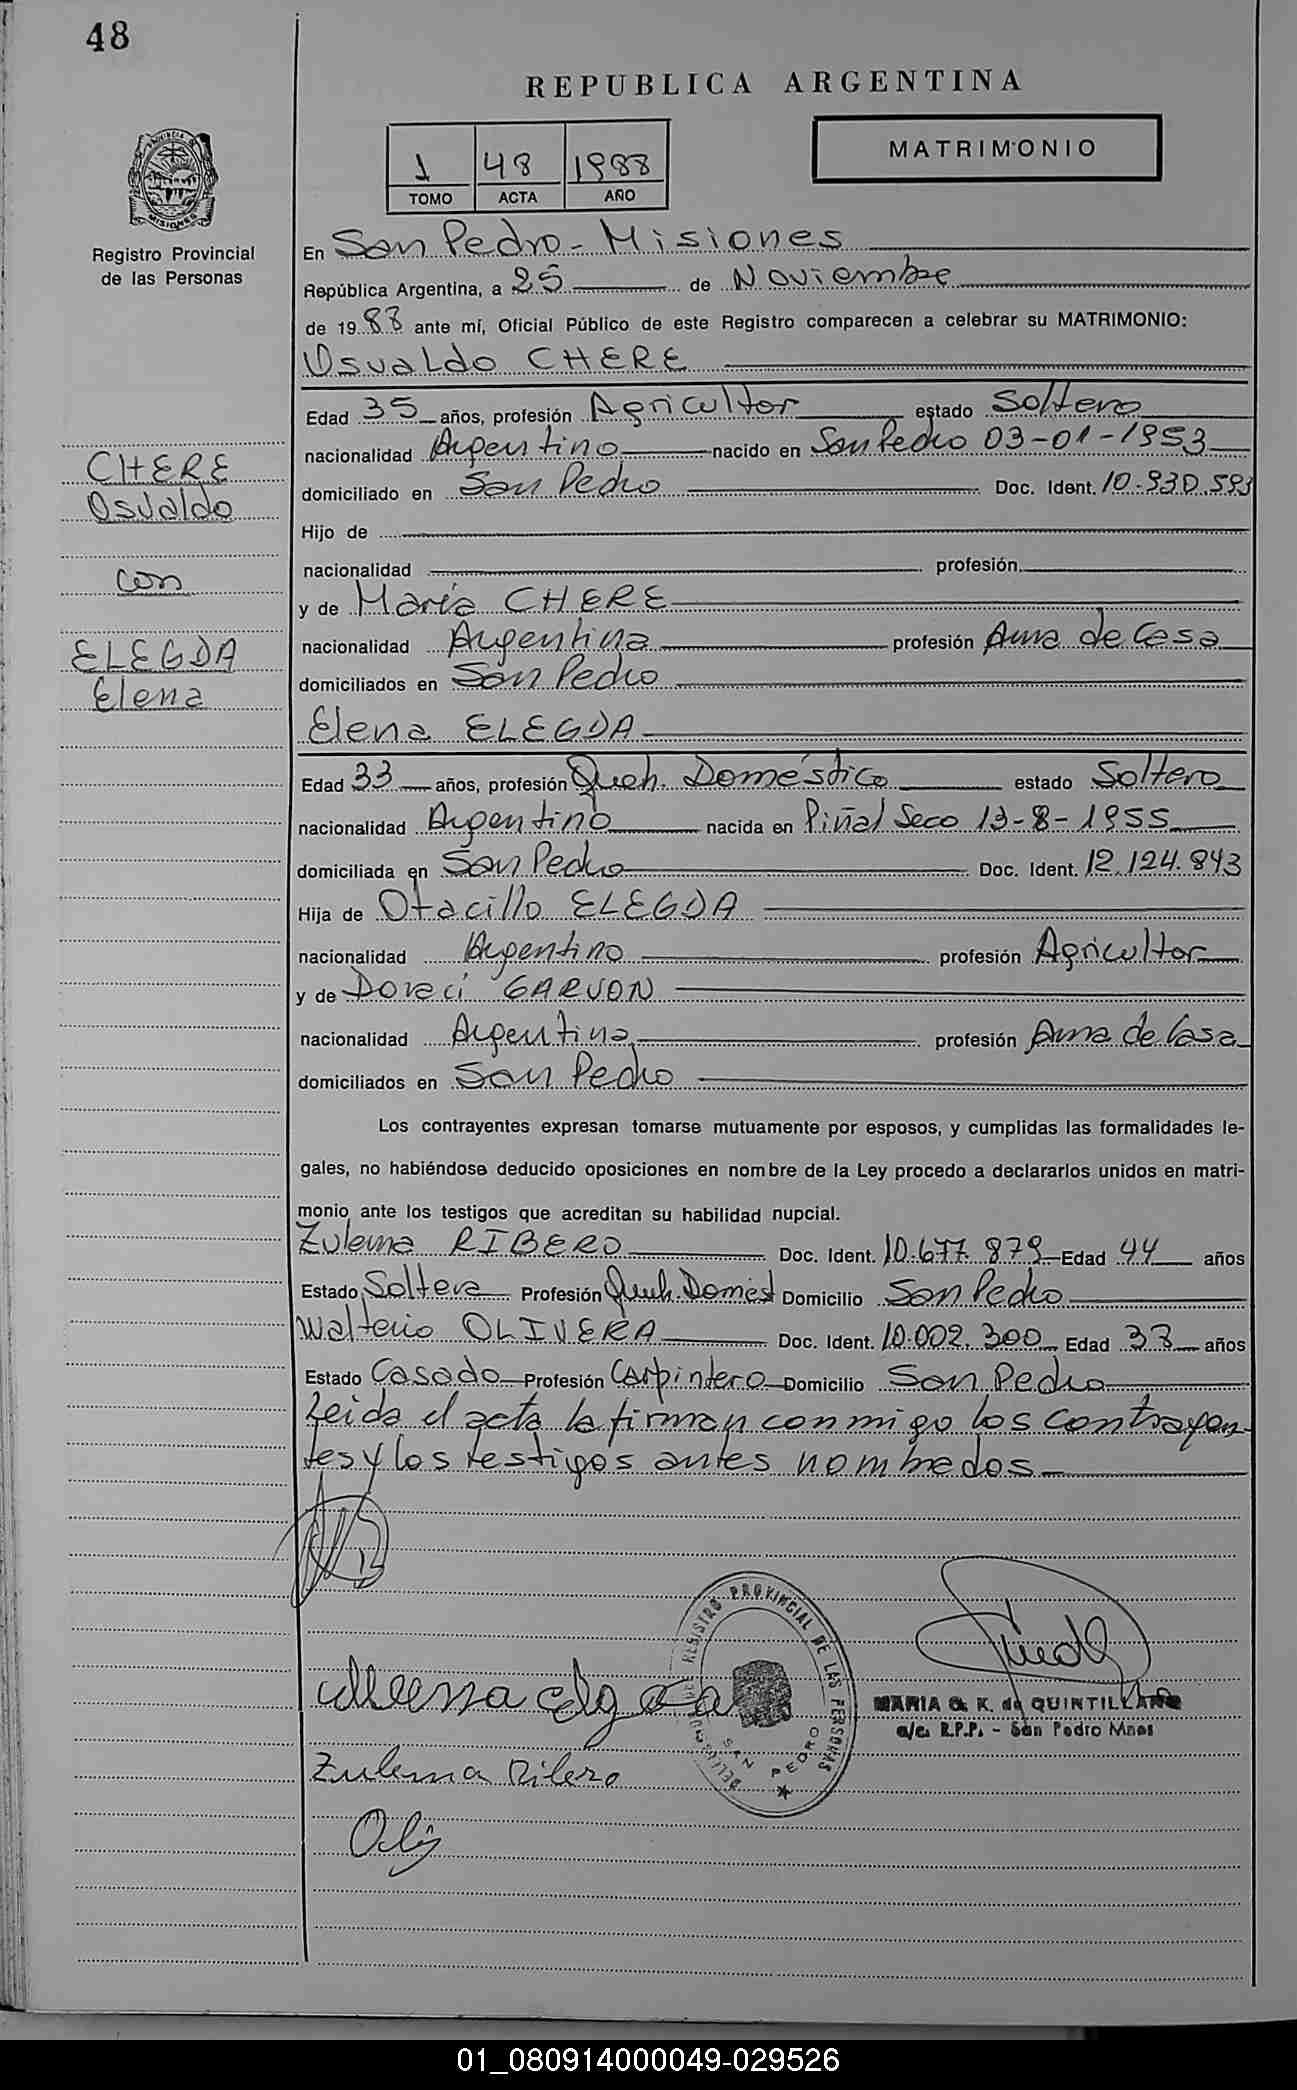 48
REPUBLICA ARGENTINA
1 48 1988
TOMO ACTA AÑO
MATRIMONIO
PROVINCIA DE MISIONES
Registro Provincial
de las Personas
En San Pedro - Misiones
República Argentina, a 25 de Noviembre
de 19 88 ante mí, Oficial Público de este Registro comparecen a celebrar su MATRIMONIO:
Osvaldo CHERE
Edad 35 años, profesión Agricultor estado Soltero
nacionalidad Argentino nacido en San Pedro 03-01-1953
domiciliado en San Pedro Doc. Ident. 10.930.593
Hijo de
nacionalidad profesión
y de María CHERE
nacionalidad Argentina profesión Ama de Casa
domiciliados en San Pedro
CHERE
Osvaldo
con
ELEGDA
Elena
Elena ELEGDA
Edad 33 años, profesión Queh. Doméstico estado Soltera
nacionalidad Argentino nacida en Piñal Seco 13-8-1955
domiciliada en San Pedro Doc. Ident. 12.124.843
Hija de Otacillo ELEGDA
nacionalidad Argentino profesión Agricultor
y de Doreci GARVON
nacionalidad Argentina profesión Ama de Casa
domiciliados en San Pedro
Los contrayentes expresan tomarse mutuamente por esposos, y cumplidas las formalidades le-
gales, no habiéndose deducido oposiciones en nombre de la Ley procedo a declararlos unidos en matri-
monio ante los testigos que acreditan su habilidad nupcial.
Zulema RIBERO Doc. Ident. 10.677.879 Edad 44 años
Estado Soltera Profesión Queh. Domést Domicilio San Pedro
Walterio OLIVERA Doc. Ident. 10.002.300 Edad 33 años
Estado Casado Profesión Carpintero Domicilio San Pedro
Leida el acta la firman conmigo los contrayen-
tes y los testigos antes nombrados
REGISTRO PROVINCIAL DE LAS PERSONAS
SAN PEDRO
MARIA G. K. de QUINTILLANO
a/c. R.P.P. - San Pedro Mnes
Zulema Ribero
01_080914000049-029526